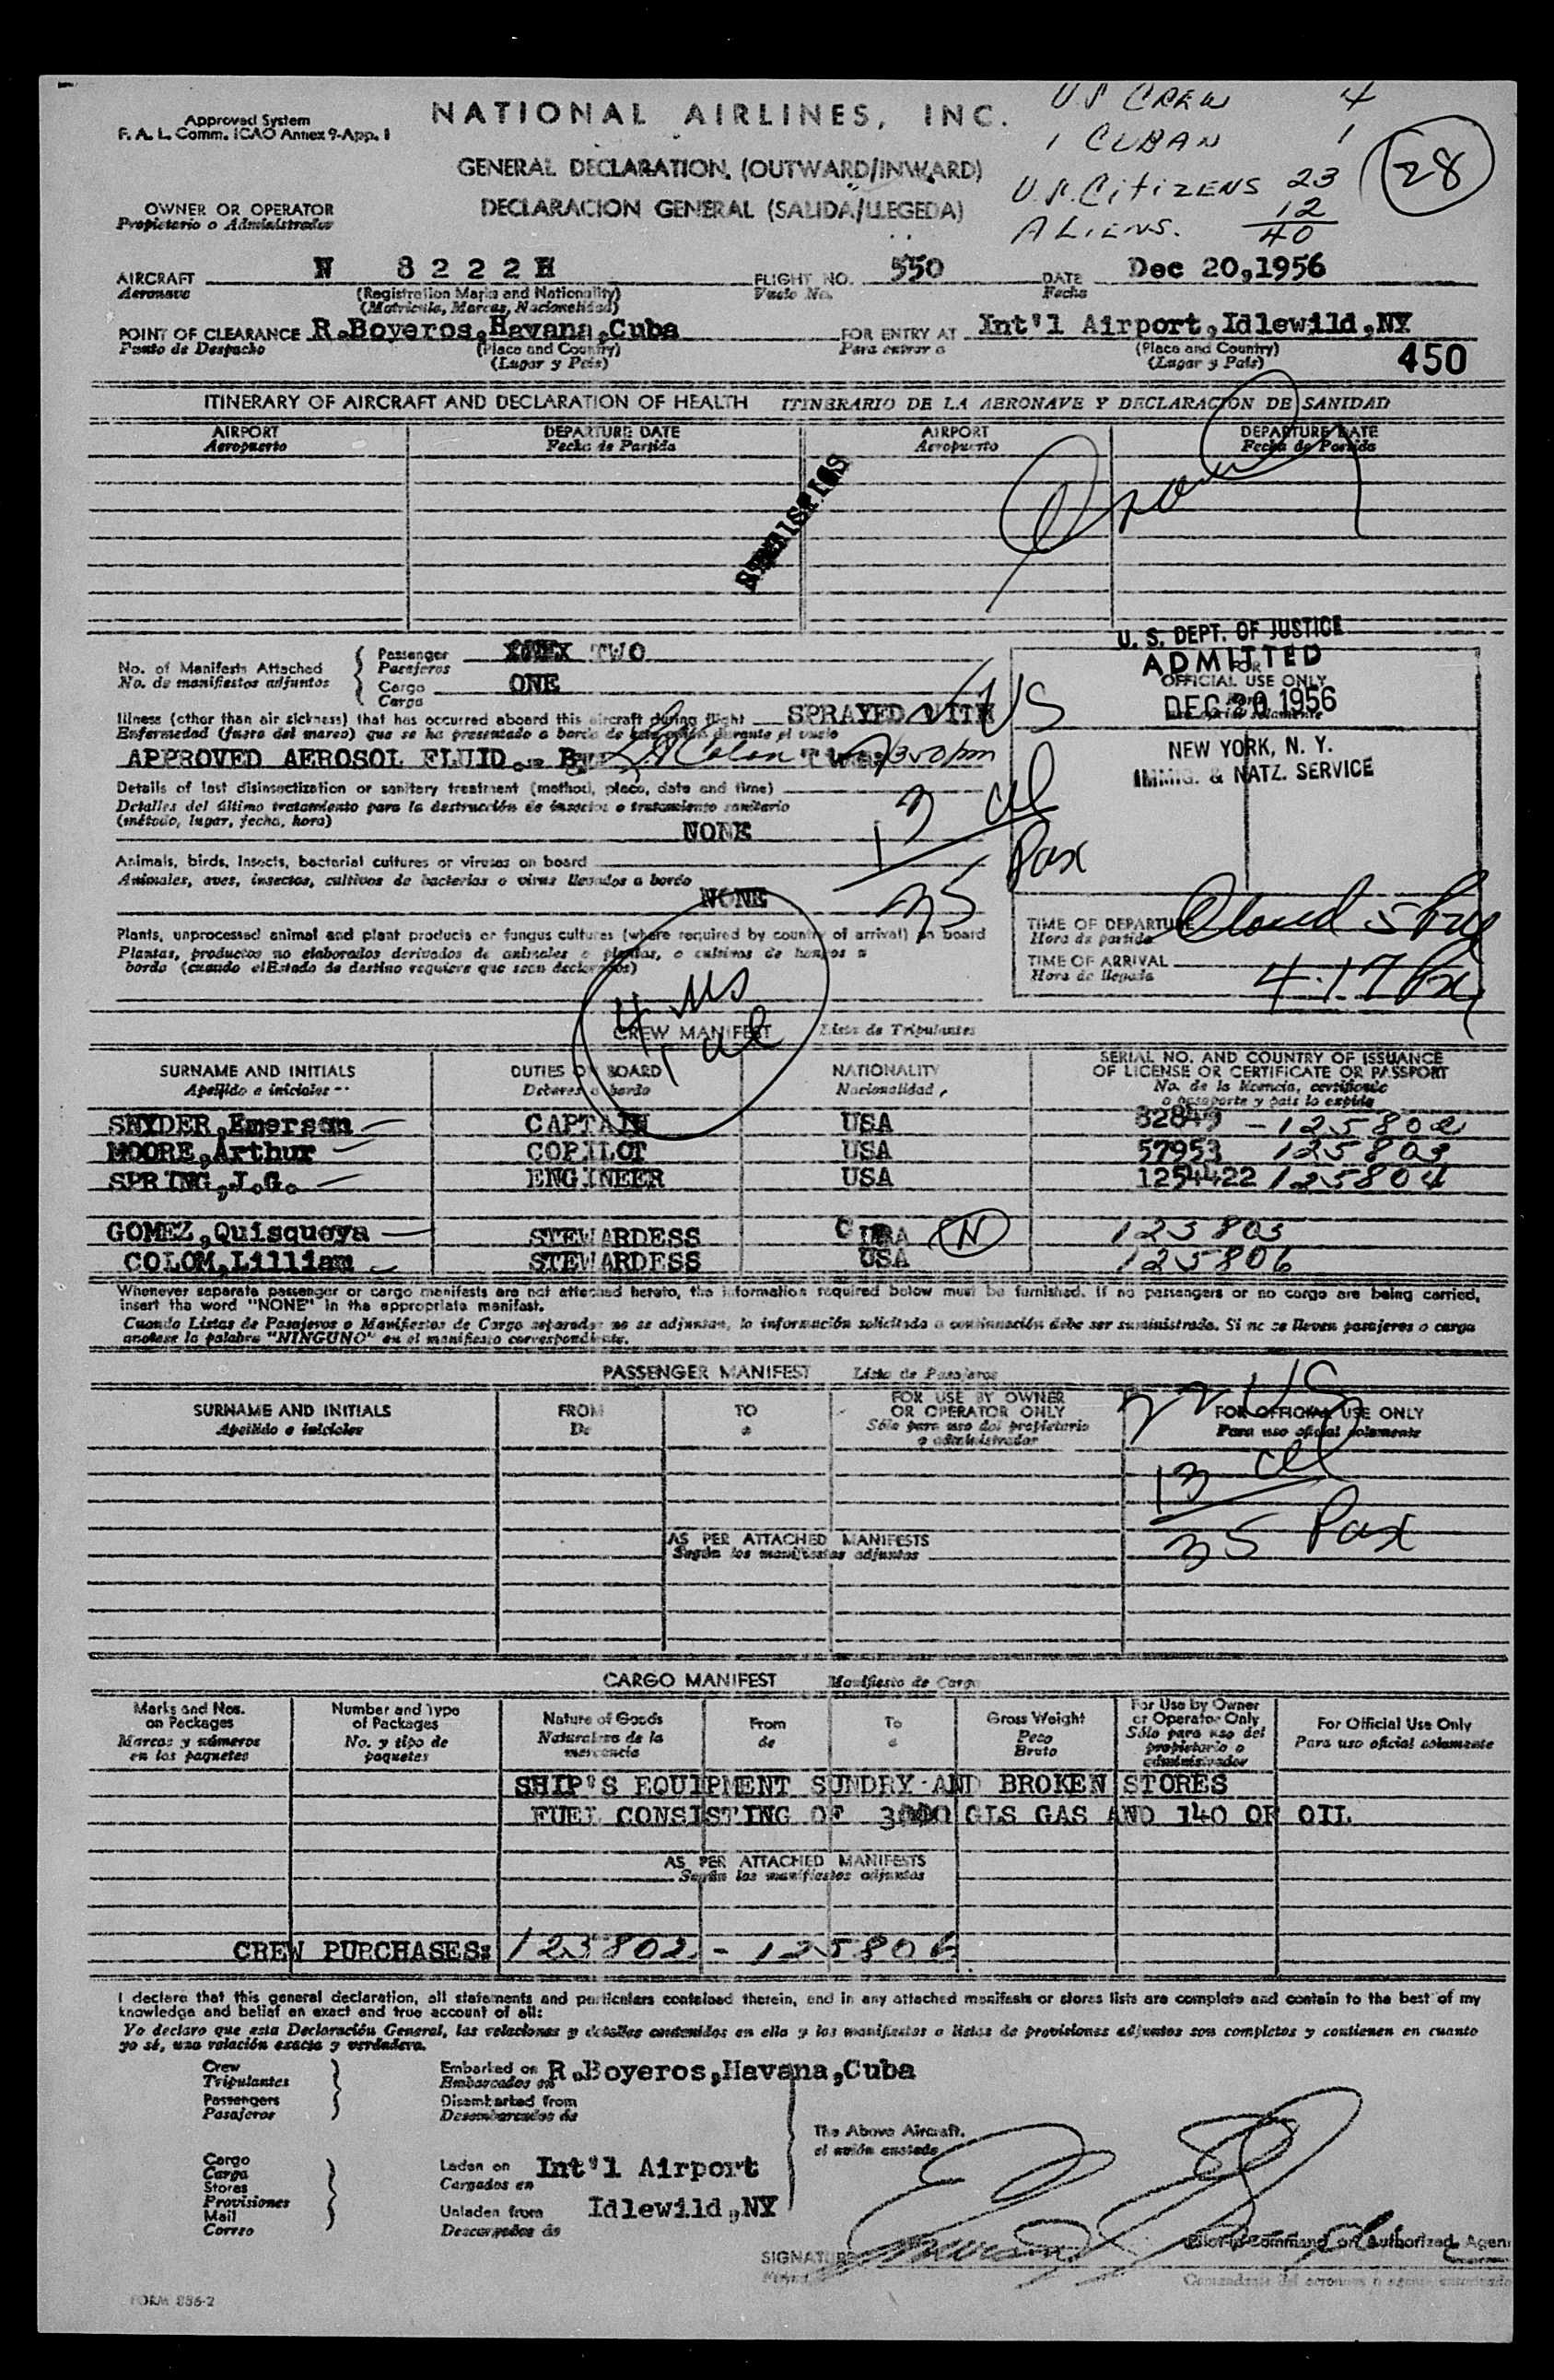 NATIONAL AIRLINES, INC.
Approved System
F. A. L. Comm. ICAO Annex 9-App. 1
US CREW 4
1 CUBAN 1
U.S. CITIZENS 23
ALIENS. 12
40
28
GENERAL DECLARATION (OUTWARD/INWARD)
DECLARACION GENERAL (SALIDA/LLEGEDA)
OWNER OR OPERATOR
Propietario o Administrador
AIRCRAFT N 8222H FLIGHT NO. 550 DATE Dec 20,1956
Aeronave (Registration Marks and Nationality) Vuelo No. Fecha
(Matricula, Marcas, Nacionalidad)
POINT OF CLEARANCE R.Boyeros,Havana,Cuba FOR ENTRY AT Int'l Airport,Idlewild,NY
Punto de Despacho (Place and Country) Para entrar a (Place and Country)
(Lugar y Pais) (Lugar y Pais)
450
ITINERARY OF AIRCRAFT AND DECLARATION OF HEALTH ITINERARIO DE LA AERONAVE Y DECLARACION DE SANIDAD
AIRPORT DEPARTURE DATE AIRPORT DEPARTURE DATE
Aeropuerto Fecha de Partida Aeropuerto Fecha de Partida
STATISTICS
No. of Manifests Attached Passenger TWO
No. de manifiestos adjuntos Pasajeros
Cargo ONE
Carga
U. S. DEPT. OF JUSTICE
ADMITTED
FOR
OFFICIAL USE ONLY
DEC 20 1956
NEW YORK, N. Y.
IMMIG. & NATZ. SERVICE
Illness (other than air sickness) that has occurred aboard this aircraft during flight SPRAYED WITH
Enfermedad (fuera del mareo) que se ha presentado a bordo de durante el vuelo
APPROVED AEROSOL FLUID. By
US
Details of last disinsectization or sanitary treatment (method, place, date and time)
Detalles del último tratamiento para la destrucción de insectos o tratamiento sanitario
(método, lugar, fecha, hora)
NONE
13 al
Pax
Animals, birds, insects, bacterial cultures or viruses on board
Animales, aves, insectos, cultivos de bacterias o virus llevados a bordo
NONE
35
Plants, unprocessed animal and plant products or fungus cultures (where required by country of arrival) on board
Plantas, productos no elaborados derivados de animales o plantas, o cultivos de hongos a
bordo (cuando el Estado de destino requiere que sean declarados)
TIME OF DEPARTURE
Hora de partida
TIME OF ARRIVAL 4:17
Hora de llegada
4 US
1 al
CREW MANIFEST Lista de Tripulantes
SURNAME AND INITIALS DUTIES ON BOARD NATIONALITY SERIAL NO. AND COUNTRY OF ISSUANCE
OF LICENSE OR CERTIFICATE OR PASSPORT
Apellido e iniciales Deberes a bordo Nacionalidad No. de la licencia, certificado
o pasaporte y pais lo expide
SNYDER,Emerson CAPTAIN USA 82849 - 125802
MOORE,Arthur COPILOT USA 57953 125803
SPRING,J.G. ENGINEER USA 1254422 125804
GOMEZ,Quisqueya STEWARDESS N 125805
COLOM,Lillian STEWARDESS USA 125806
Whenever separate passenger or cargo manifests are not attached hereto, the information required below must be furnished. If no passengers or no cargo are being carried,
insert the word "NONE" in the appropriate manifest.
Cuando Listas de Pasajeros o Manifiestos de Cargo separados no se adjuntan, la información solicitada a continuación debe ser suministrada. Si no se lleven pasajeros o carga
anotese la palabra "NINGUNO" en el manifiesto correspondiente.
PASSENGER MANIFEST Lista de Pasajeros
SURNAME AND INITIALS FROM TO FOR USE BY OWNER
OR OPERATOR ONLY FOR OFFICIAL USE ONLY
Apellido e iniciales De a Sólo para uso del propietario
o administrador Para uso oficial solamente
22 US
13 al
35 Pax
AS PER ATTACHED MANIFESTS
Según los manifiestos adjuntos
CARGO MANIFEST Manifiesto de Carga
Marks and Nos.
on Packages
Marcas y números
en los paquetes
Number and Type
of Packages
No. y tipo de
paquetes
Nature of Goods
Naturaleza de la
mercancia
From
de
To
a
Gross Weight
Peso
Bruto
For Use by Owner
or Operator Only
Sólo para uso del
propietario o
administrador
For Official Use Only
Para uso oficial solamente
SHIP'S EQUIPMENT SUNDRY AND BROKEN STORES
FUEL CONSISTING OF GLS GAS AND 140 OF OIL
AS PER ATTACHED MANIFESTS
Según los manifiestos adjuntos
CREW PURCHASES: 125802 - 125806
I declare that this general declaration, all statements and particulars contained therein, and in any attached manifests or stores lists are complete and contain to the best of my
knowledge and belief an exact and true account of all:
Yo declaro que esta Declaración General, las relaciones y detalles contenidos en ella y los manifiestos o listas de provisiones adjuntos son completos y contienen en cuanto
yo sé, una relación exacta y verdadera.
Crew Embarked on R.Boyeros,Havana,Cuba
Tripulantes Embarcados en
Passengers Disembarked from
Pasajeros Desembarcados de
The Above Aircraft.
el avión anotado
Cargo
Carga
Stores
Provisiones
Mail
Correo
Laden on Int'l Airport
Cargados en
Unladen from Idlewild,NY
Descargados de
SIGNATURE
Pilot in Command or Authorized Agent
FORM 886-2